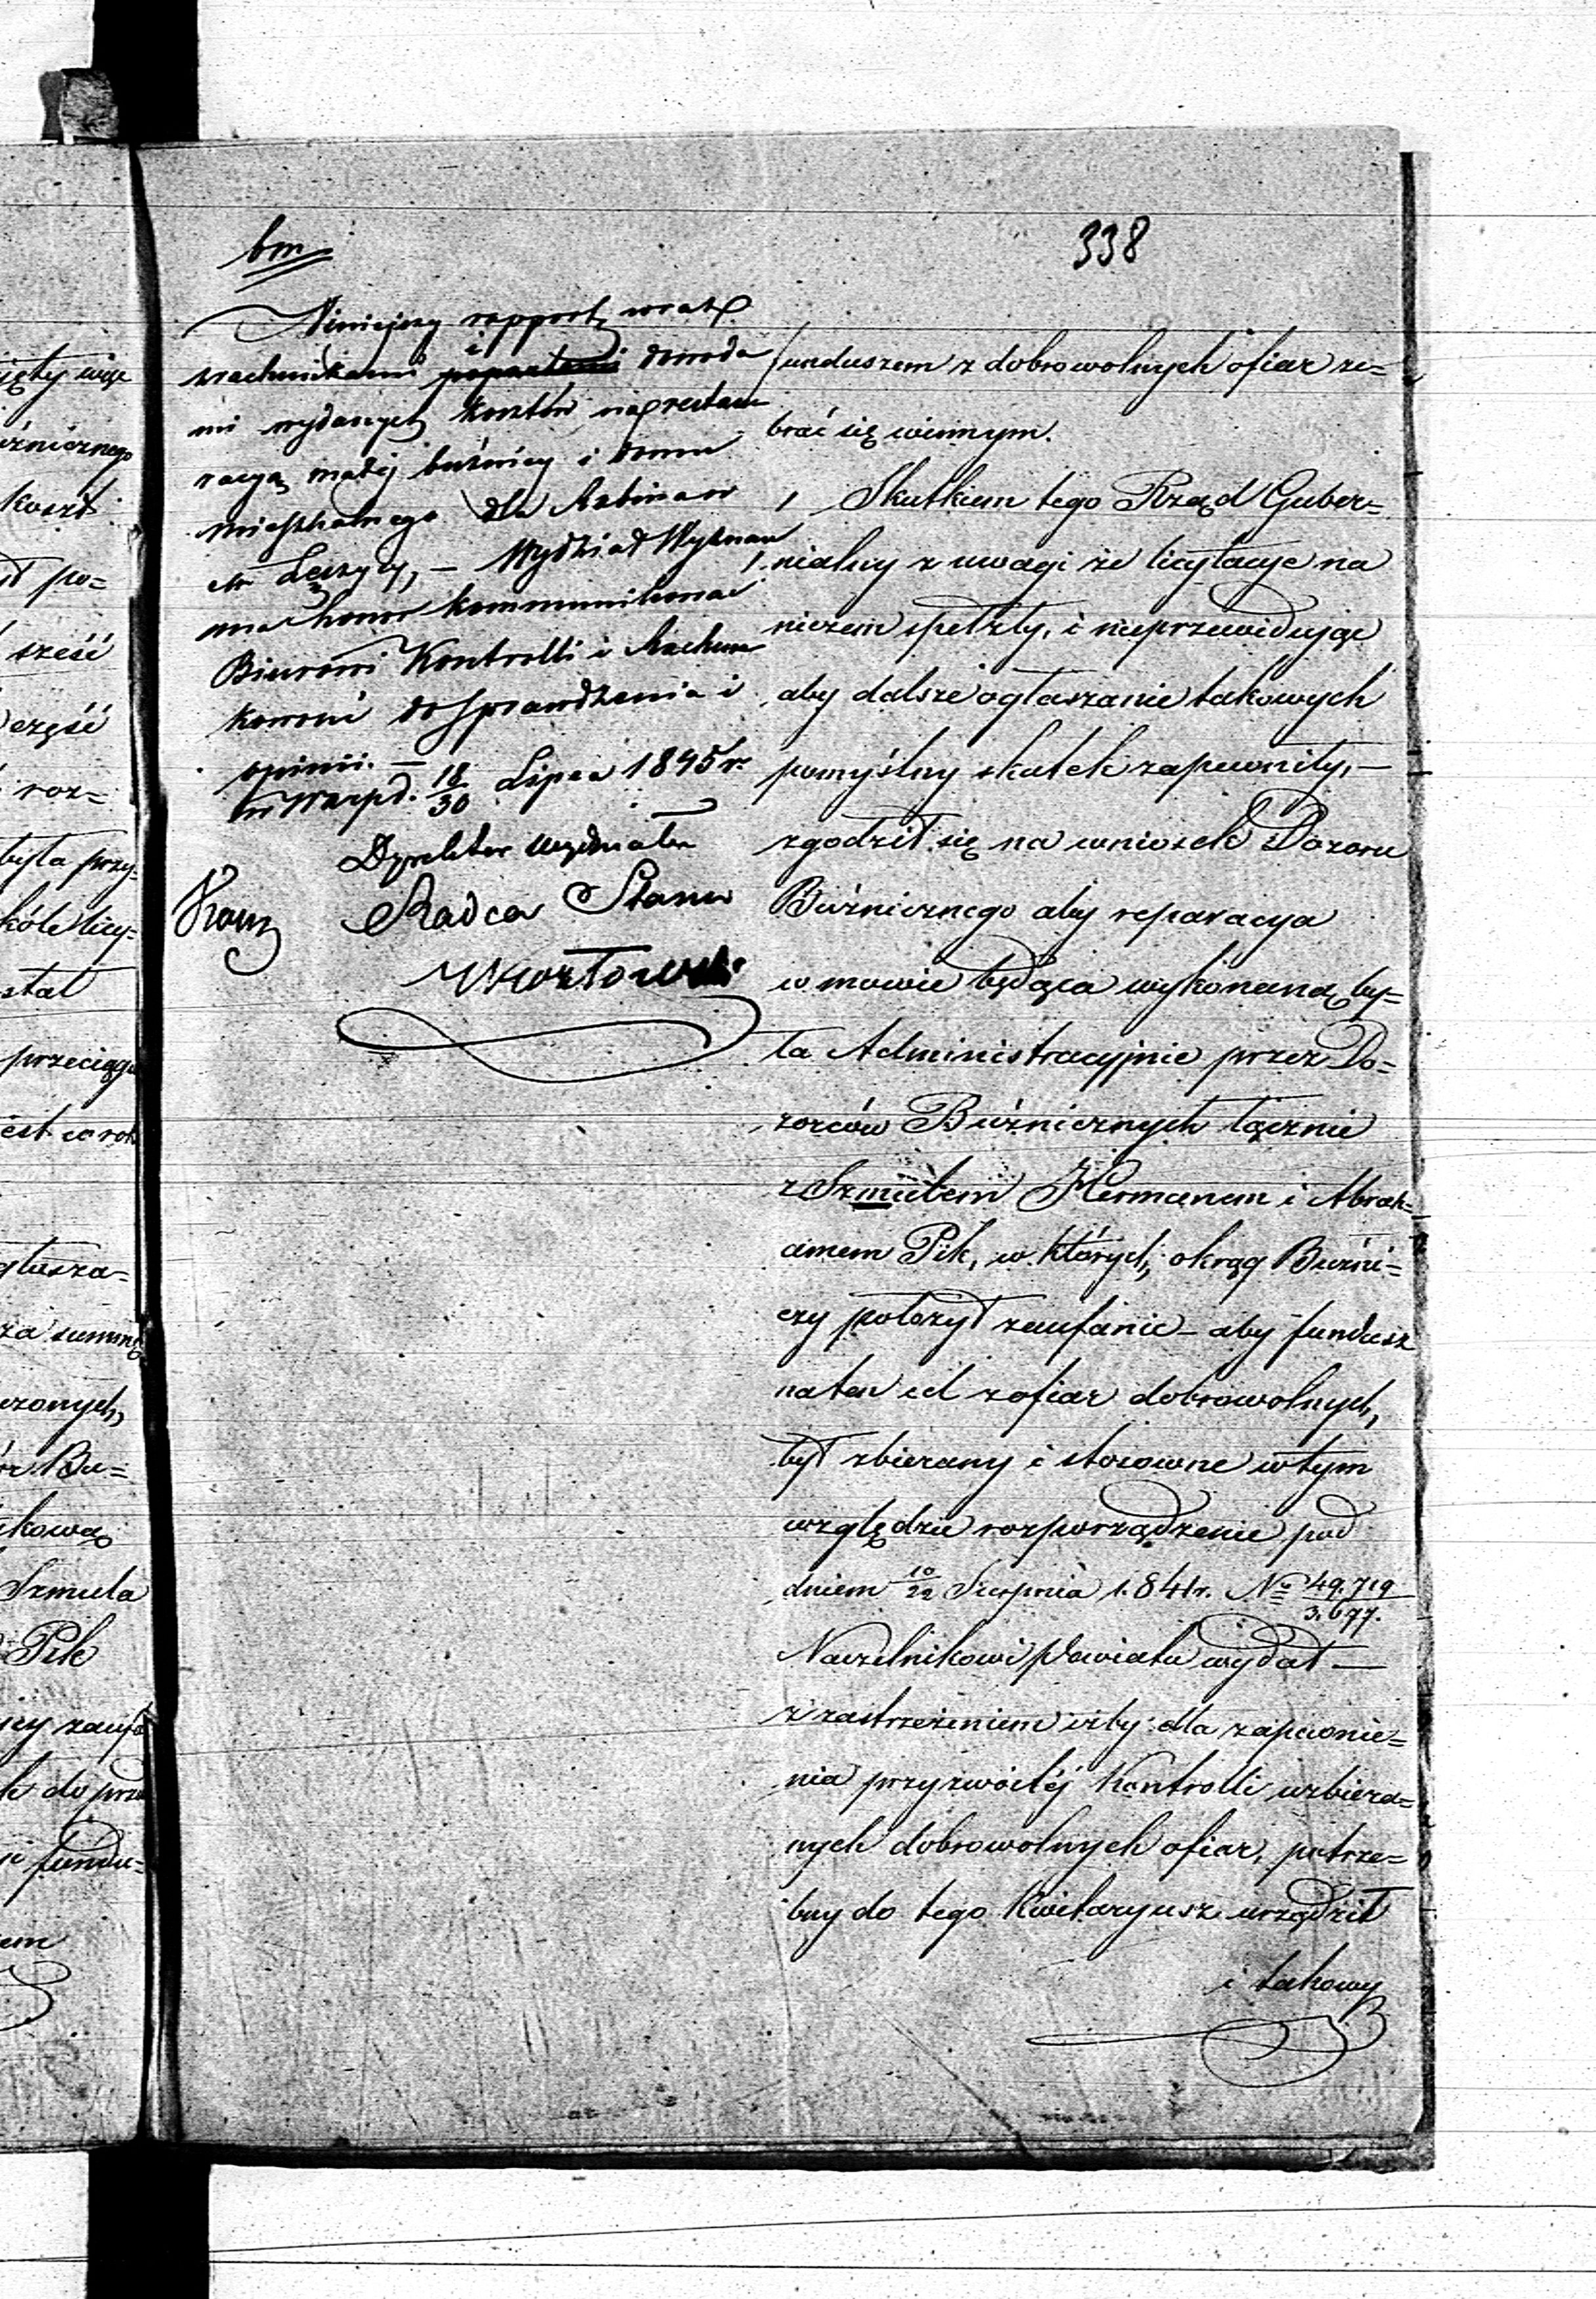 338
bm
Niniejszy rapport wraz
z rachunkami i dowoda
mi wydanych kosztów na restau
racyą małej bużnicy i domu
mieszkalnego dla Rabina w
w Łęczycy, – Wydział Wyznań
ma honor kommunikować
Biurowi Kontrolli i Rachun
kowości do sprawdzenia i
opinii. –
18/30 Lipca 1845 r.
Dyrektor Wydziału
Radca Stanu
funduszem z dobrowolnych ofiar ze=
brać się winnym.
Skutkiem tego Rząd Guber=
nialny z uwagi że licytacye na
niczem spełzły, i nieprzewidując
aby dalsze ogłaszanie takowych
pomyślny skutek zapewniły, –
zgodził się na wniosek Dozoru
Bóźnicznego aby reparacya
w mowie będąca wykonaną by=
ła Administracyjnie przez Do=
zorców Bóźnicznych łącznie
z Szmulem Hermanem i Abrah=
amem Pik, w których okrąg Bużni=
czy położył zaufanie – aby fundusz
na ten cel z ofiar dobrowolnych,
był zbierany i stosowne w tym
względzie rozporządzenie pod
dniem 10/22 Sierpnia 1841 r. No 49.719/3.677.
Naczelnikowi Powiatu wydał –
z zastrzeżeniem iżby dla zapewnie=
nia przyzwoitéj Kontrolli uzbiera=
nych dobrowolnych ofiar, potrze=
bny do tego Kwitaryusz urządził
i takowy